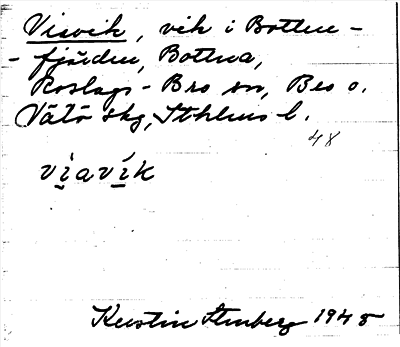 Viavik, vik i Botten-
- fjärden, Bottna,
Roslags-Bro sn, Bro o.
Vätö skg, Sthlms l.
48
vi̲avi̲k
Kerstin Stenberg 1948